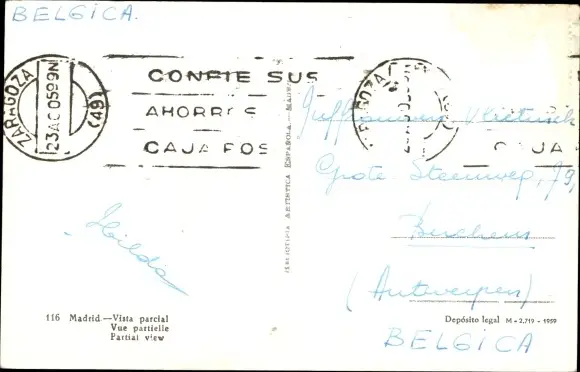 BELGICA.
ZARAGOZA
23 AGO 59 9N
(49)
CONFIE SUS
AHORROS
CAJA POS
CAJA
Grote Steenweg, 79
Berchem
(Antwerpen)
BELGICA
Hilda
HELIOTIPIA ARTISTICA ESPAÑOLA.—
116 Madrid.—Vista parcial
Vue partielle
Partial view
Depósito legal M-2.719-1959